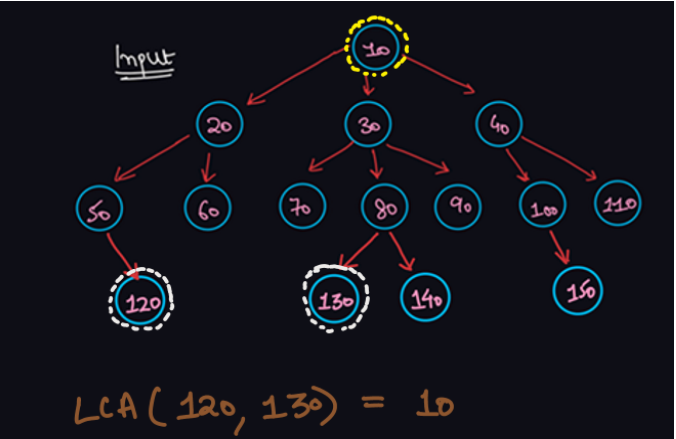 Input
10
20 30 40
50 60 70 80 90 100 110
120 130 140 150
LCA(120, 130) = 10